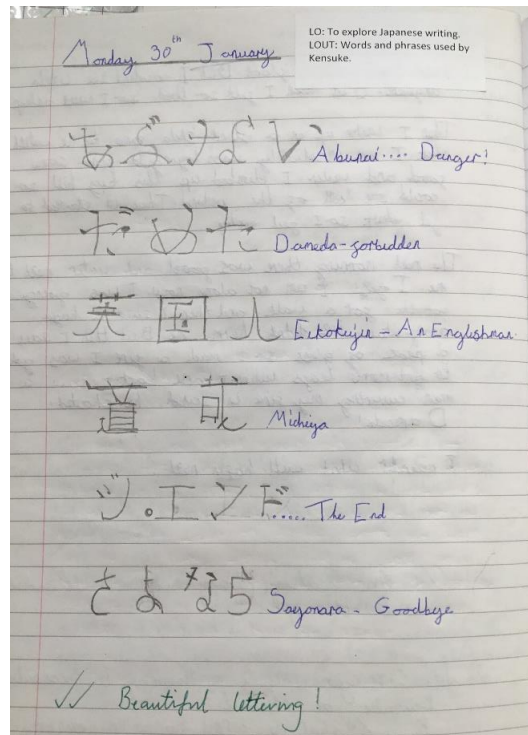 Monday 30th January
LO: To explore Japanese writing.
LOUT: Words and phrases used by
Kensuke.
あぶない Abunai.... Danger!
だめだ Dameda - forbidden
英国人 Eikokujin - An Englishman
道哉 Michiya
ジ。エンド..... The End
さよなら Sayonara - Goodbye
✓✓ Beautiful lettering!